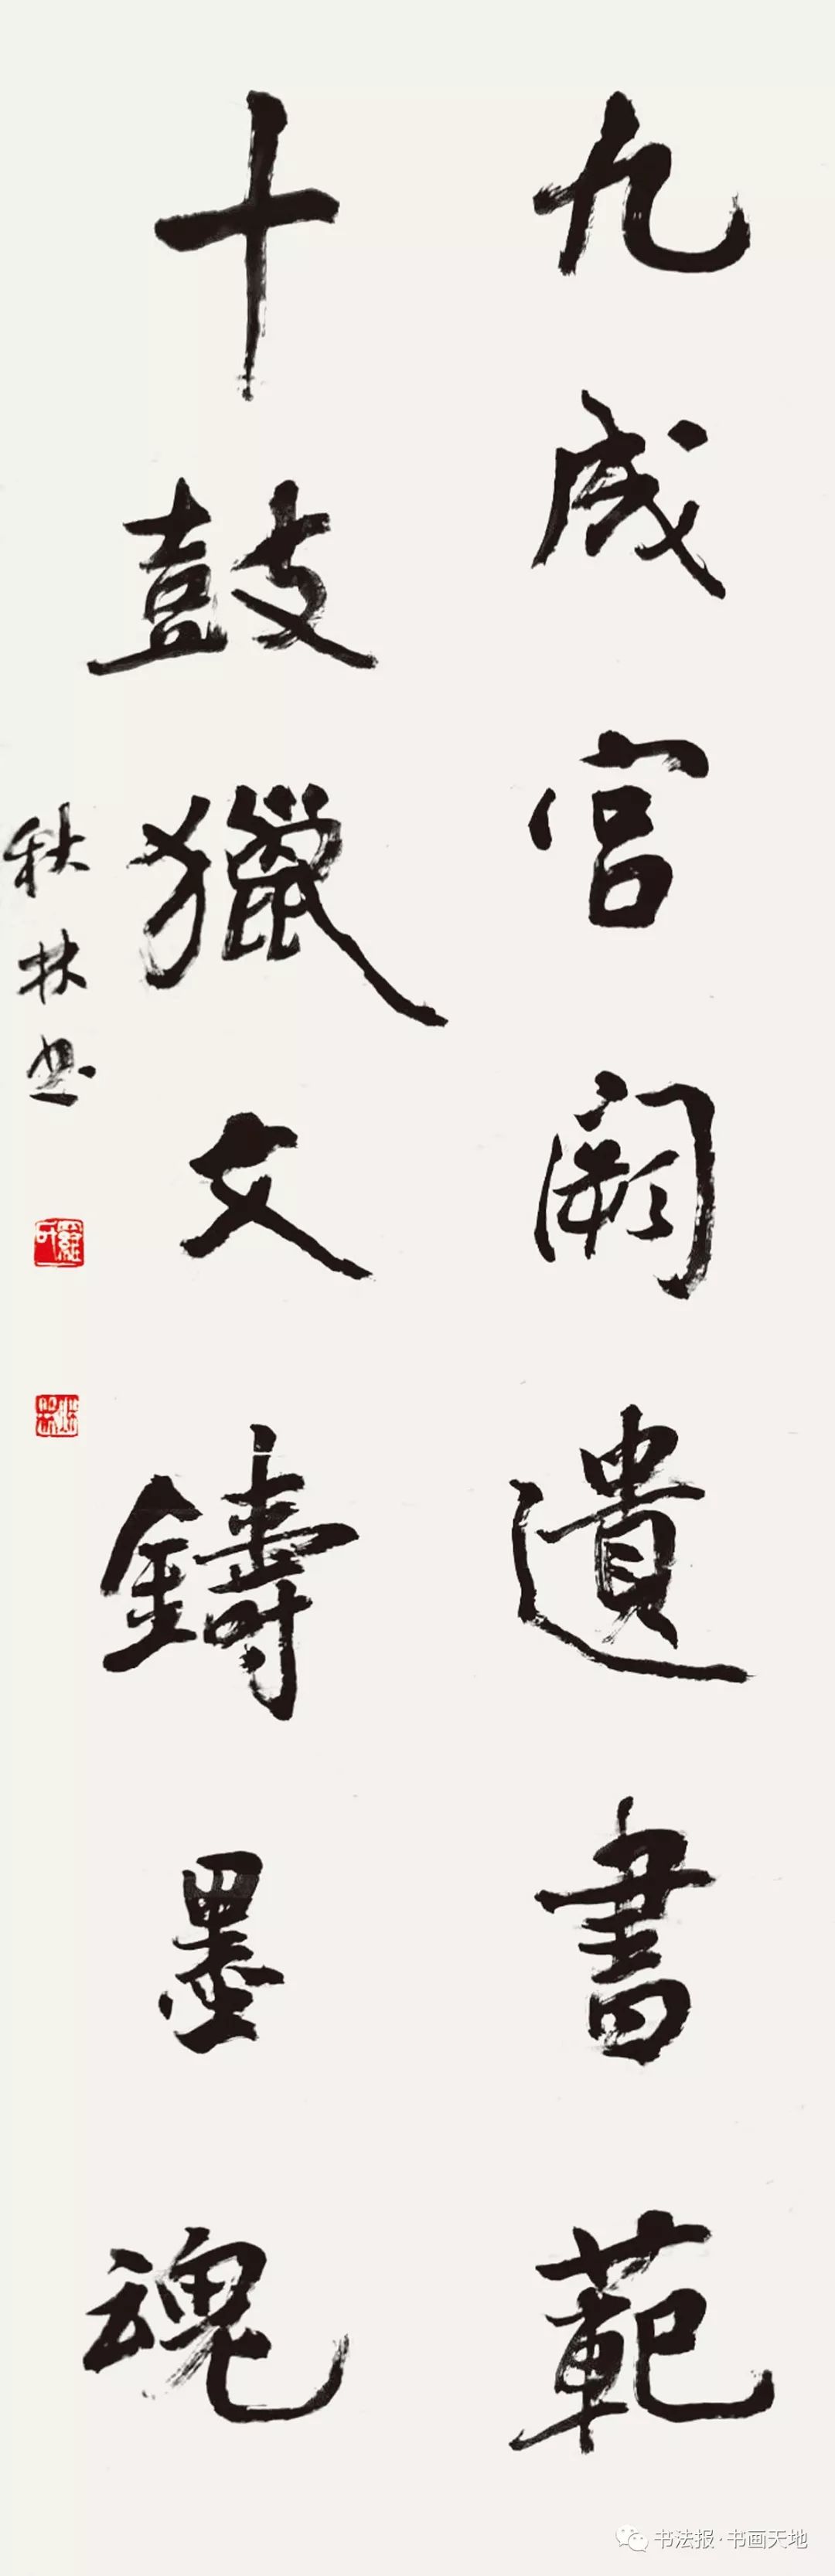 九成宫阙遺書範
十鼓獵文鑄墨魂
秋林书
书法报·书画天地